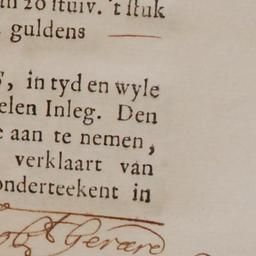 in 20 stuiv. 't stuk
guldens
, in tyd en wyle
elen Inleg. Den
e aan te nemen,
verklaart van
onderteekent in
Gerard